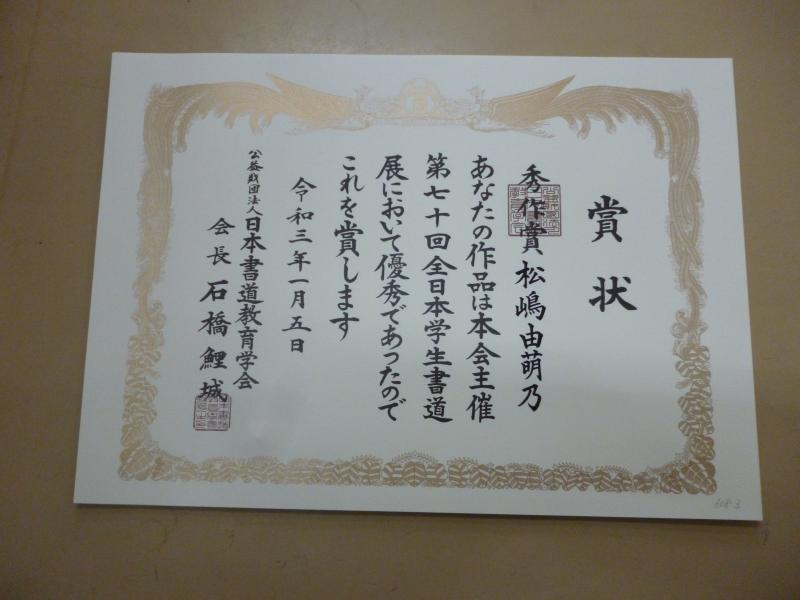 賞状
秀作賞 松嶋由萌乃
あなたの作品は本会主催
第七十回全日本学生書道
展において優秀であったので
これを賞します
令和三年一月五日
公益財団法人日本書道教育学会
会長 石橋鯉城